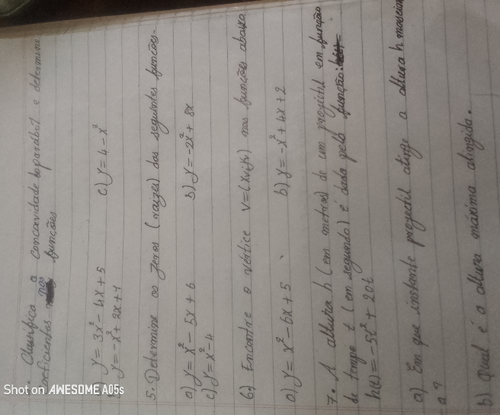 Classifica a concavidade da parábola e determine
coeficientes nas funções
y = 3x² - 4x + 5   c) y = 4 - x²
y = -x² + 2x + 1
5. Determine os zeros (raizes) das seguintes funções.
a) y = x² - 5x + 6   b) y = -2x² + 8x
c) y = x² - 4
6. Encontre o vértice V = (xv; yv) nas funções abaixo
a) y = x² - 6x + 5   b) y = -x² + 4x + 2
7. A altura h (em metros) de um projéctil em função
de tempo t (em segundo) é dada pela função:
h(t) = -5t² + 20t
a) Em que instante projectil atinge a altura h
a?
b) Qual é a altura máxima atingida.
Shot on AWESOME A05s